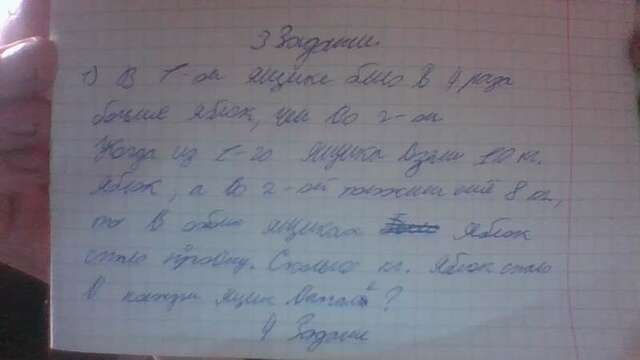 3 Задание.
1) В 1-ом ящике было в 4 раза
больше яблок, чем во 2-ом
Когда из 1-го ящика взяли 10 кг.
яблок, а во 2-ой положили ещё 8 кг,
то в обоих ящиках яблок
стало поровну. Сколько кг. яблок стало
в каждом ящике ?
4 Задание